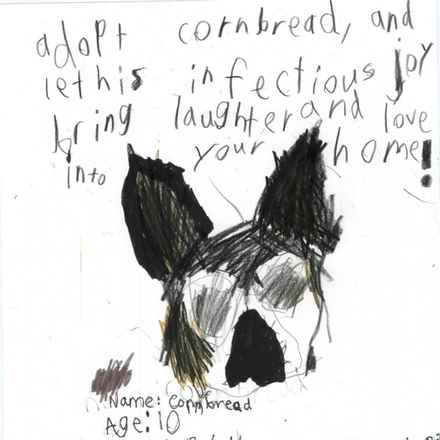 adopt cornbread, and
let his infectious joy
bring laughter and love
into your home!
Name: Cornbread
Age: 10